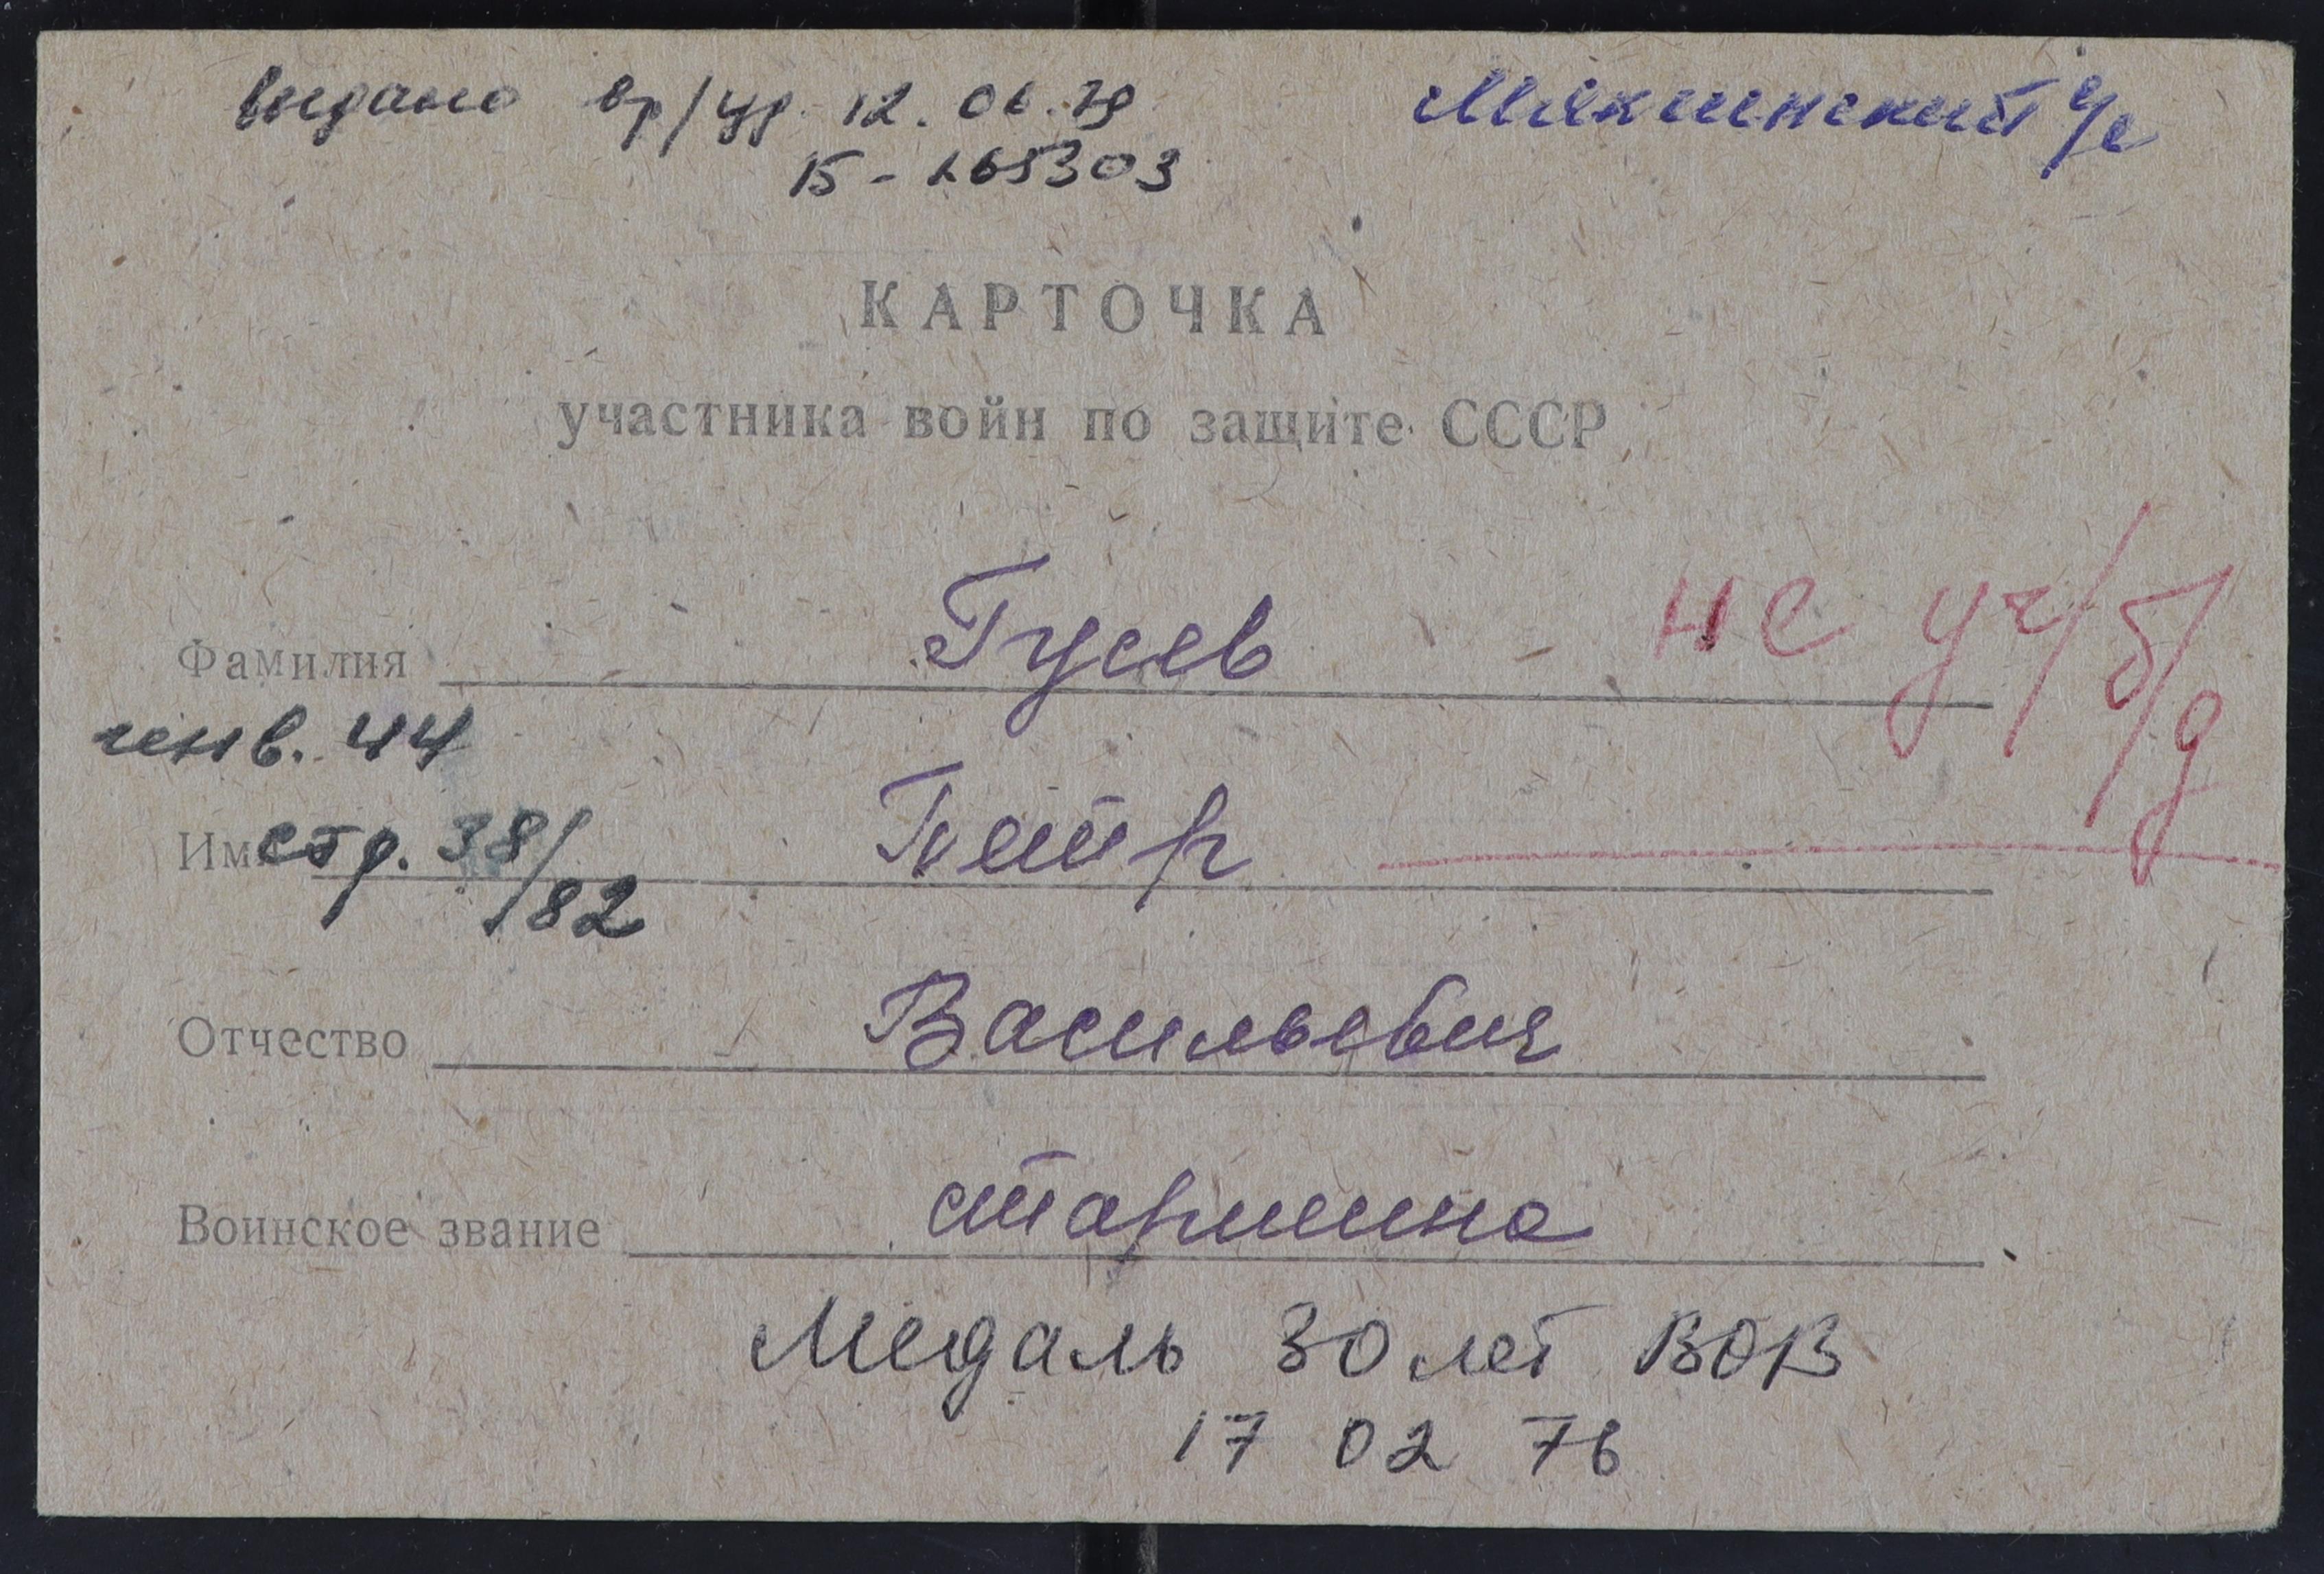 выдано вр/уд. 12.06.79
Мякшинский с/с
15-265303
КАРТОЧКА
участника войн по защите СССР
Фамилия Гусев
не уч/б/д
инв. 44
Имя Петр
стр. 38/82
Отчество Васильевич
Воинское звание старшина
Медаль 30 лет ВОВ
17 02 76